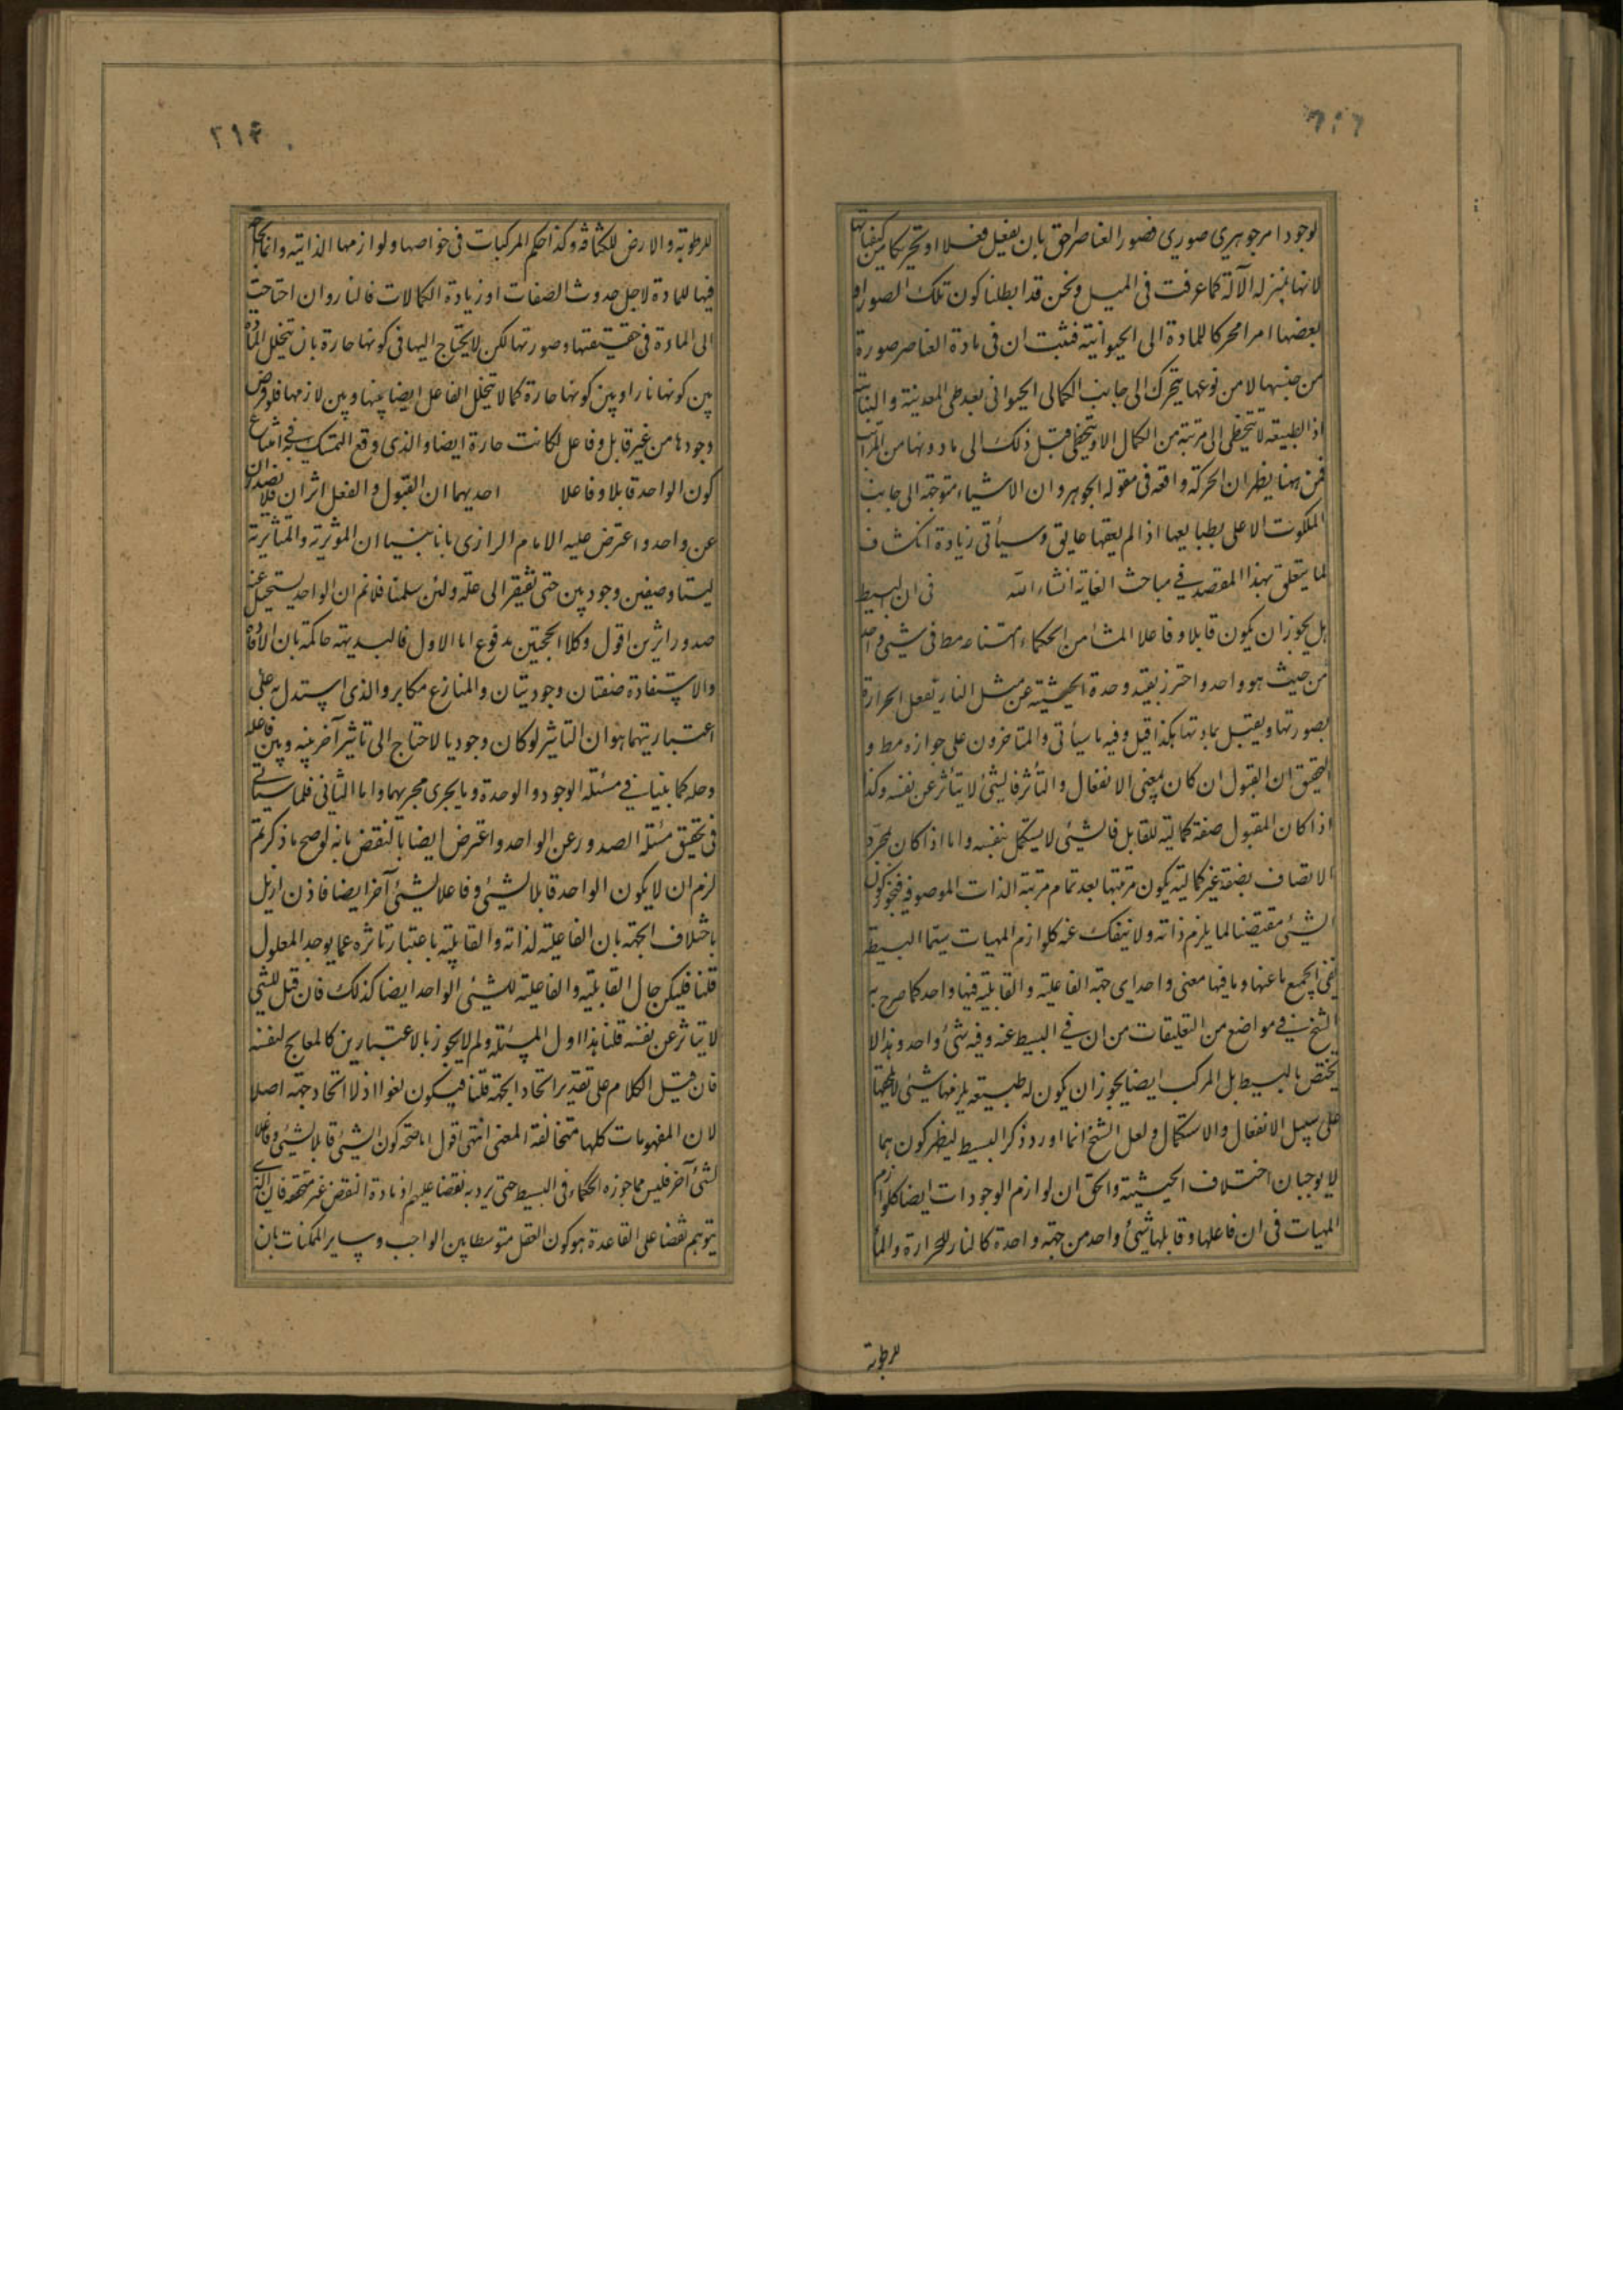 لوجود امر جوهري صوري فصور العناصر احق بان يفعل فعلا او تحريكا من كيفياتها
لانها بمنزله الآلة كما عرفت فى الميل ونحن قد ابطلنا كون تلك الصور او
بعضها امرا محركا للمادة الى الحيوانية فثبت ان فى مادة العناصر صورة
من جنسها لا من نوعها يتحرك الى جانب الكمال الحيوانى بعد طى المعدنية والنباتية
اذ الطبيعه لا تتخطى الى مرتبة من الكمال الا ويتخطى قبل ذلك الى ما دونها من المراتب
فمن ههنا يظهر ان الحركة واقعه فى مقولة الجوهر وان الاشياء متوجهة الى جانب
الملكوت الاعلى بطبايعها اذا لم يعقها عايق وسيأتى زيادة انكشاف
لما يتعلق بهذا المقصد في مباحث الغاية انشاء الله فى ان البسيط
هل يجوز ان يكون قابلا وفاعلا المشا من الحكماء امتناعه مط فى شيئ واحد
من حيث هو واحد واحترز بقيد وحدة الحيثية عن مثل النار تفعل الحرارة
بصورتها ويقبل بمادتها هكذا قيل وفيه ما سيأتى والمتاخرون على جوازه مط و
التحقيق ان القبول ان كان بمعنى الانفعال والتأثر فالشئ لا يتأثر عن نفسه وكذا
اذا كان المقبول صفة كمالية للقابل فالشيئ لا يستكمل بنفسه واما اذا كان بمجرد
الاتصاف بصفة غير كمالية يكون مرتبتها بعد تمام مرتبة الذات الموصوفه فيجوز كون
الشيئ مقتضيا لما يلزم ذاته ولا ينفك عنه كلوازم المهيات سيما البسيطة
ففى الجميع ما عنها وما فيها معنى واحد اى جهة الفاعلية والقابلية فيها واحد كما صرح به
الشيخ في مواضع من التعليقات من ان في البسيط عنه وفيه شئ واحد وهذا لا
يختص بالبسيط بل المركب ايضا يجوز ان يكون له طبيعه يلزمها شيئ لا يلحقها
على سبيل الانفعال والاستكمال ولعل الشيخ انما اورد ذكر البسيط ليظهر كون هما
لا يوجبان اختلاف الحيثية والحق ان لوازم الوجودات ايضا كلوازم
المهيات فى ان فاعلها وقابلها شيئ واحد من جهة واحدة كالنار للحرارة والماء
للرطوبة
٢١۴
للرطوبة والارض للكثافه وكذا حكم المركبات فى خواصها ولوازمها الذاتيه وانما الحاجة
فيها للمادة لاجل حدوث الصفات او زيادة الكمالات فالنار وان احتاجت
الى المادة فى حقيقتها وصورتها لكن لا يحتاج اليها فى كونها حارة بان يتخلل المادة
بين كونها نارا وبين كونها حارة كما لا يتخلل الفاعل ايضا بينها وبين لازمها فلو فرض
وجودها من غير قابل وفاعل لكانت حارة ايضا والذى وقع التمسك به في امتناع
كون الواحد قابلا وفاعلا احديهما ان القبول والفعل اثران فلا يصدران
عن واحد واعترض عليه الامام الرازى بانا بينا ان الموثرية والمتاثرية
ليستا وصفين وجوديين حتى تفتقر الى علة ولئن سلمنا فلا نم ان الواحد يستحيل عنه
صدور اثرين اقول وكلا الحجتين مدفوع اما الاول فالبديهة حاكمة بان الافادة
والاستفادة صفتان وجوديتان والمنازع مكابر والذى استدل به على
اعتباريتهما هو ان التاثير لو كان وجوديا لاحتاج الى تاثير آخر بينه وبين فاعله
وحله كما بينا في مسئلة الوجود والوحدة وما يجرى مجريهما واما الثانى فلما سياتى
فى تحقيق مسئله الصدور عن الواحد واعترض ايضا بالنقض بانه لو صح ما ذكرتم
لزم ان لا يكون الواحد قابلا لشيئ وفاعلا لشيئ آخر ايضا فاذن ازيل
باختلاف الجهة بان الفاعلية لذاته والقابلية باعتبار تاثره عما يوجد المعلول
قلنا فليكن حال القابلية والفاعلية للشيئ الواحد ايضا كذلك فان قيل الشئ
لا يتاثر عن نفسه قلنا هذا اول المسئلة ولم لا يجوز بالاعتبارين كالمعالج لنفسه
فان قيل الكلام على تقدير اتحاد الجهة قلنا فيكون لغوا اذ لا اتحاد جهة اصلا
لان المفهومات كلها متخالفة المعنى انتهى اقول اما صحة كون الشيئ قابلا لشيئ وفاعلا
لشئ آخر فليس مما جوزه الحكماء فى البسيط حتى يرد به نقضا عليهم اذ مادة النقض غير متحققه فان الذى
يتوهم نقضا على القاعدة هو كون العقل متوسطا بين الواجب وساير الممكنات بان